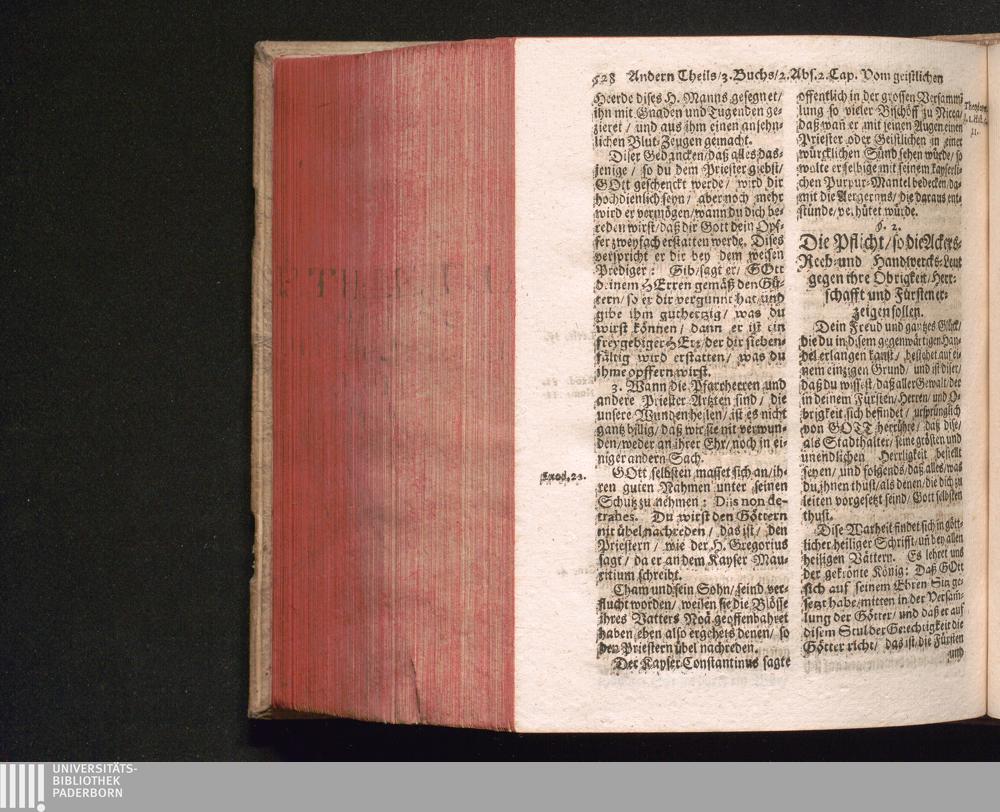 528 Andern Theils/3.Buchs/2.Abs.2.Cap. Vom geistlichen
Heerde dises H. Manns gesegnet/
ihn mit Gnaden und Tugenden ge-
zieret / und aus ihm einen ansehn-
lichen Blut-Zeugen gemacht.
Diser Gedancken/daß alles das-
jenige / so du dem Priester giebst/
GOtt geschenckt werde / wird dir
hochdienlich seyn / aber noch mehr
wird er vermögen/wann du dich be-
reden wirst/daß dir Gott dein Opf-
fer zweyfach erstatten werde. Dises
verspricht er dir bey dem weisen
Prediger: Gib/sagt er/ GOtt
deinem HErren gemäß den Gü-
tern/ so er dir vergunnt hat/und
gibe ihm guthertzig/ was du
wirst können/ dann er ist ein
freygebiger HErr/der dir sieben-
fältig wird erstatten/ was du
ihme opffern wirst.
3. Wann die Pfarrherren und
andere Priester Artzten sind/ die
unsere Wunden heilen/ ist es nicht
gantz billig/daß wir sie nit verwun-
den/weder an ihrer Ehr/noch in ei-
niger andern Sach.
Exod. 23.
GOtt selbsten masset sich an/ih-
ren guten Nahmen unter seinen
Schutz zu nehmen: Diis non de-
trahes. Du wirst den Göttern
nit übel nachreden/ das ist/ den
Priestern/ wie der H. Gregorius
sagt/ da er an dem Kayser Mau-
ritium schreibt.
Cham und sein Sohn/seind ver-
flucht worden/ weilen sie die Blösse
ihres Vatters Noä geoffenbahret
haben eben also ergehets denen/ so
den Priestern übel nachreden.
Der Kayser Constantinus sagte
offentlich in der grossen Versamm-
lung so vieler Bischöff zu Nicea/
daß wañ er mit seinen Augen einen
Priester oder Geistlichen in einer
würcklichen Sünd sehen würde/ so
wolte er selbige mit seinem kayserli-
chen Purpur-Mantel bedecken/da-
mit die Aergernus/ die daraus ent-
stünde/verhütet würde.
Theodoret.
11.
§. 2.
Die Pflicht/so die Ackers-
Reeb- und Handwercks-Leut
gegen ihre Obrigkeit/Herr-
schafft und Fürsten er-
zeigen sollen.
Dein Freud und gantzes Glück/
die du in disem gegenwärtigen Han-
del erlangen kanst/ bestehet auf ei-
nem eintzigen Grund/ und ist diser/
daß du wissest/daß aller Gewalt/der
in deinem Fürsten/Herren/und O-
brigkeit sich befindet/ ursprünglich
von GOTT herrühre/ daß dise/
als Stadthalter/ seine grösten und
unendlichen Herrligkeit bestellt
seyen/ und folgends/daß alles/was
du ihnen thust/als denen/die dich zu
leiten vorgesetzt seind/ Gott selbsten
thust.
Dise Warheit findet sich in gött-
licher heiliger Schrifft/uñ bey allen
heiligen Vättern. Es lehret uns
der gekrönte König: Daß GOtt
sich auf seinem Ehren Sitz ge-
setzt habe/mitten in der Versam-
lung der Götter/ und daß er auf
disem Stul der Gerechtigkeit die
Götter richt/ das ist/die Fürsten
und
UNIVERSITÄTS-
BIBLIOTHEK
PADERBORN